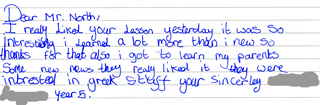 Dear Mr. North,
I really liked your lesson yesterday it was so
intresting i learned a lot more than i new so
thanks for that also i got to learn my parents
some new news they really liked it they were
intrested in greek stuff your sincerley
year 5.